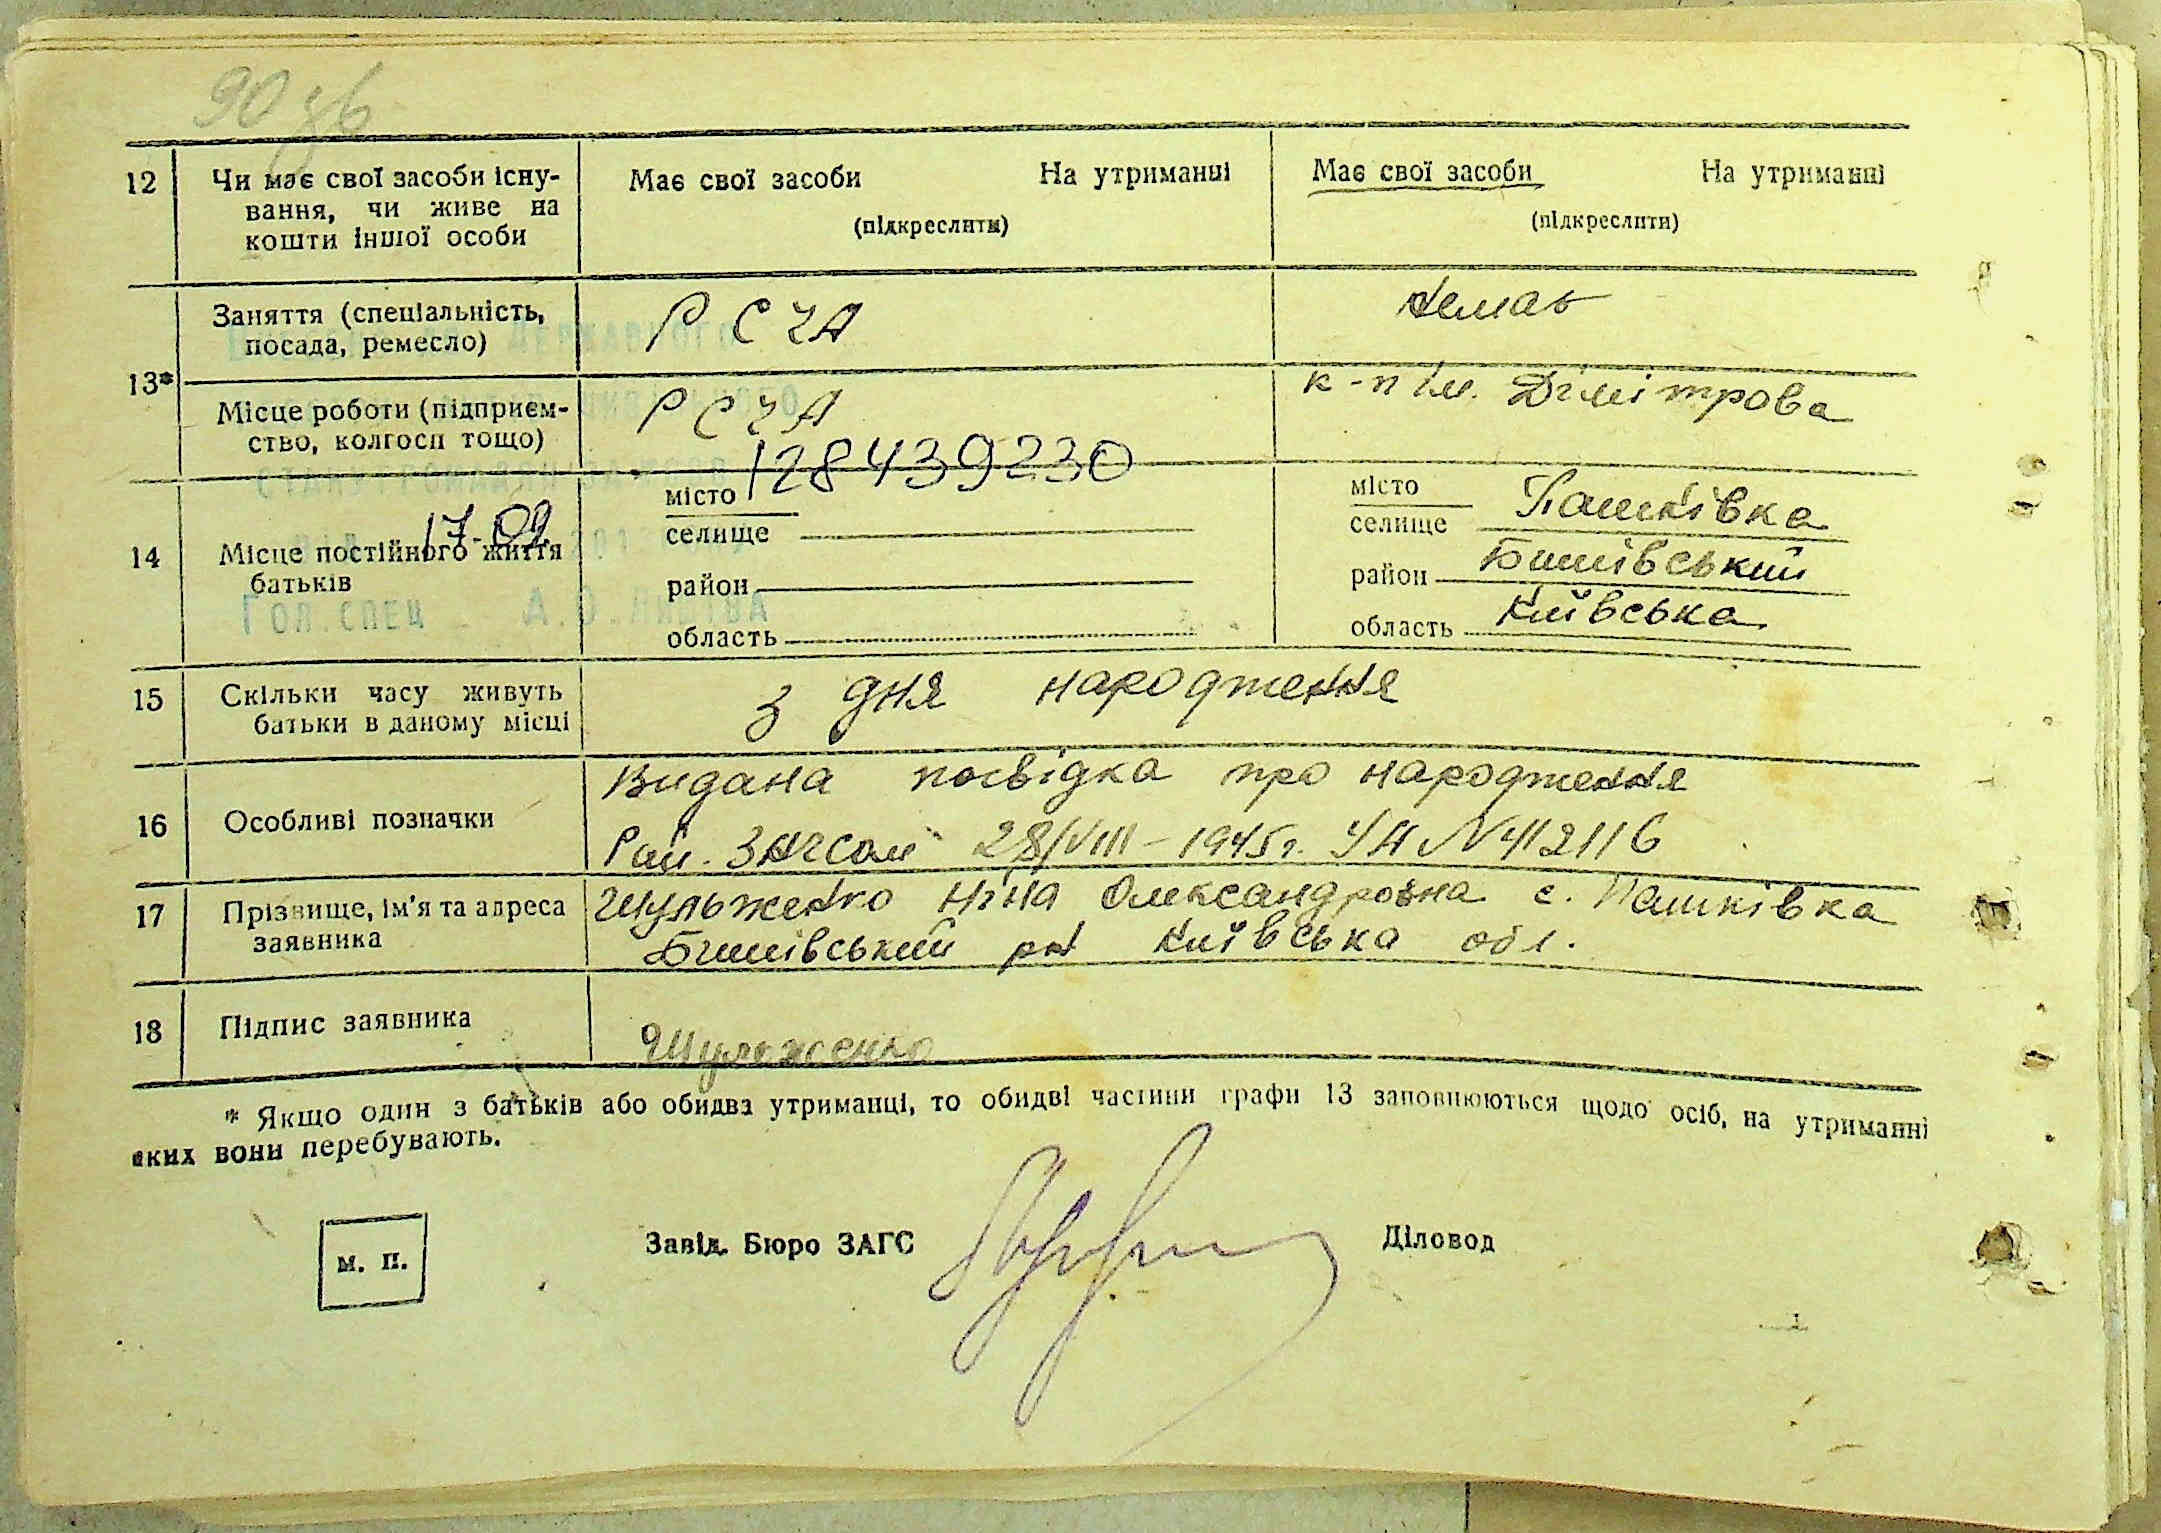 90 зв
12 Чи має свої засоби існу- Має свої засоби На утриманні Має свої засоби На утриманні
вання, чи живе на (підкреслити) (підкреслити)
кошти іншої особи
13* Заняття (спеціальність, Р С Ч А Немає
посада, ремесло)
Місце роботи (підприєм- Р С Ч А к-п ім. Дімітрова
ство, колгосп тощо)
128439230
14 Місце постійного життя місто місто Пашківка
батьків селище селище
17-09 район район Бишівський
область область Київська
Гол.спец А.О.
15 Скільки часу живуть з дня народження
батьки в даному місці
16 Особливі позначки Видана посвідка про народження
Рай. ЗАГСом 28/VIII-1945г. УН №412116
17 Прізвище, ім'я та адреса Шульженко Ніна Олександровна с. Пашківка
заявника Бишівський рн Київська обл.
18 Підпис заявника Шульженко
* Якщо один з батьків або обидва утриманці, то обидві частини графи 13 заповнюються щодо осіб, на утриманні
яких вони перебувають.
м. п. Завід. Бюро ЗАГС Діловод